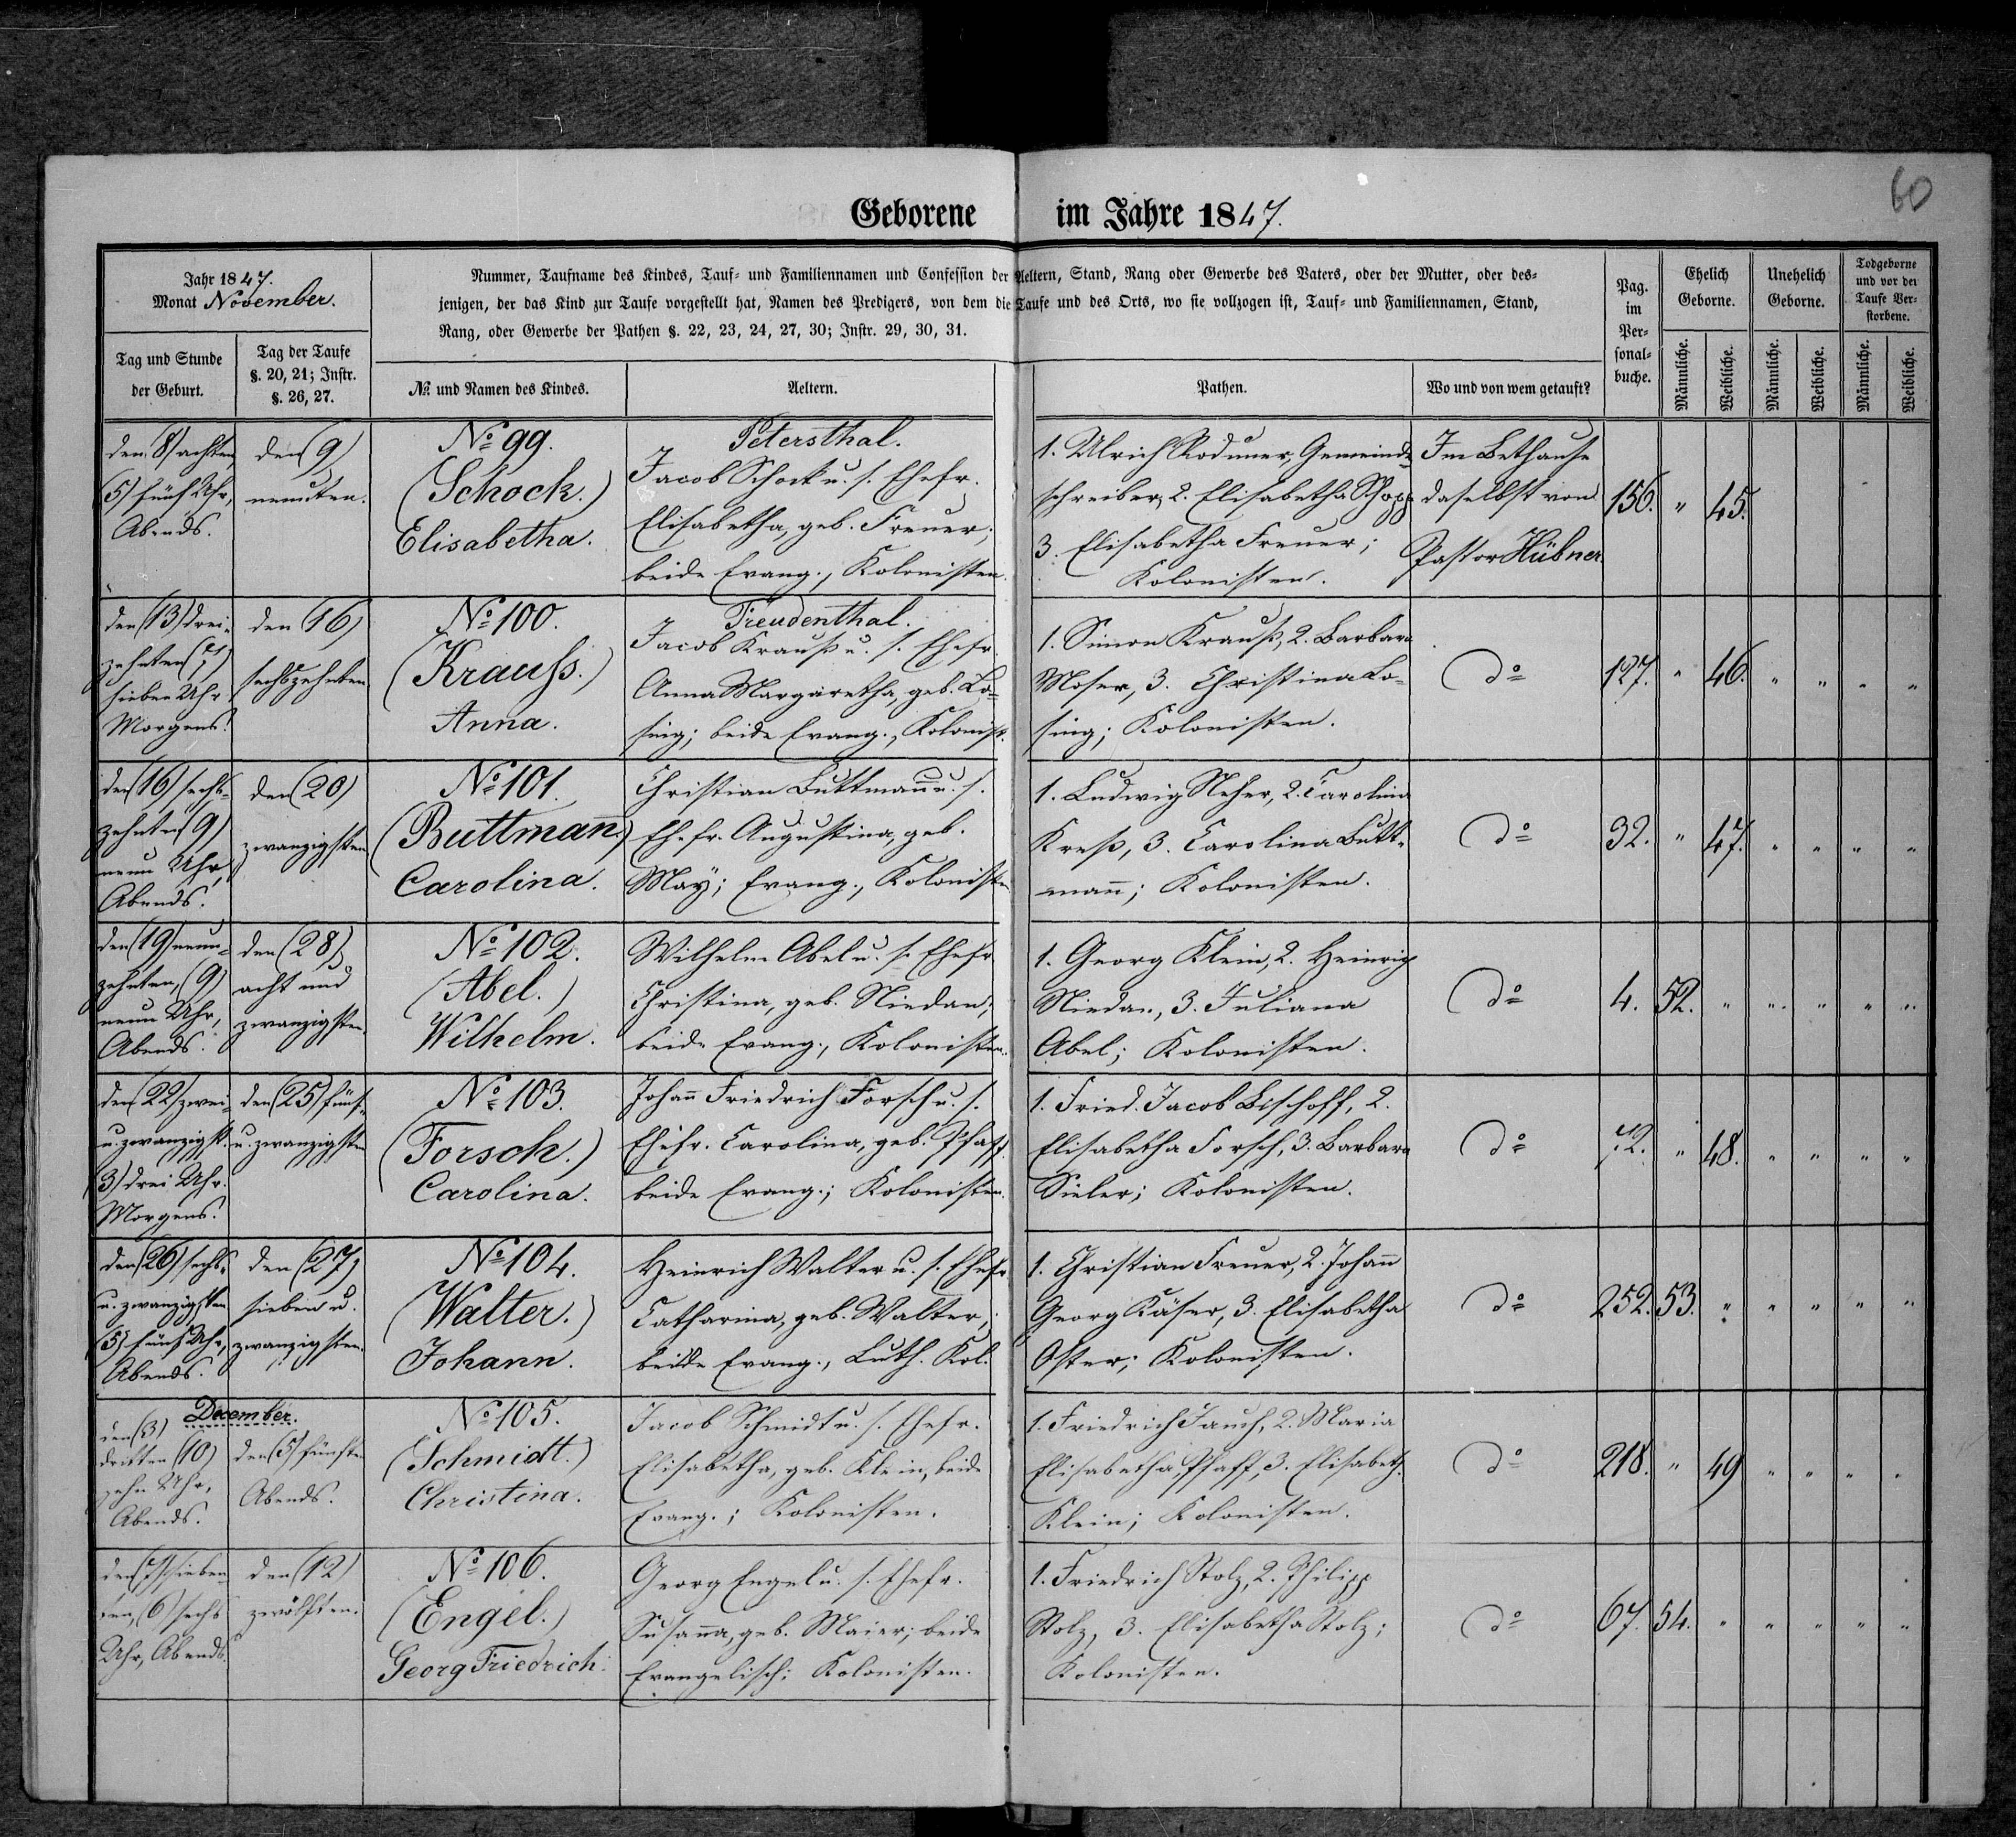 60
Geborene im Jahre 1847.
Jahr 1847.
Monat November.
Nummer, Taufname des Kindes, Tauf- und Familiennamen und Confession der Aeltern, Stand, Rang oder Gewerbe des Vaters, oder der Mutter, oder des-
jenigen, der das Kind zur Taufe vorgestellt hat, Namen des Predigers, von dem die Taufe und des Orts, wo sie vollzogen ist, Tauf- und Familiennamen, Stand,
Rang, oder Gewerbe der Pathen §. 22, 23, 24, 27, 30; Instr. 29, 30, 31.
Tag und Stunde
der Geburt.
Tag der Taufe
§. 20, 21; Instr.
§. 26, 27.
№ und Namen des Kindes.
Aeltern.
Pathen.
Wo und von wem getauft?
Pag.
im
Per-
sonal-
buche.
Ehelich
Geborne.
Unehelich
Geborne.
Todgeborne
und vor der
Taufe Ver-
storbene.
Männliche.
Weibliche.
Männliche.
Weibliche.
Männliche.
Weibliche.
den (8) achten
(5) fünf Uhr,
Abends.
den (9)
neunten.
№ 99.
(Schock.)
Elisabetha.
Petersthal.
Jacob Schock u. s. Ehefr.
Elisabetha, geb. Freuer;
beide Evang., Kolonisten.
1. Ulrich Roduner, Gemeinde
schreiber, 2. Elisabetha Schopp
3. Elisabetha Freuer;
Kolonisten.
Im Bethause
daselbst von
Pastor Hübner.
156. " 45.
den (13) drei-
zehnten (7)
sieben Uhr
Morgens.
den (16)
sechszehnten
№ 100.
(Krauß.)
Anna.
Freudenthal.
Jacob Krauß u. s. Ehefr.
Anna Margaretha, geb. Lo-
sing; beide Evang., Kolonist.
1. Simon Krauß, 2. Barbara
Moser, 3. Christina Lo-
sing; Kolonisten.
do
127. " 46. " " " "
den (16) sechs-
zehnten (9)
neun Uhr,
Abends.
den (20)
zwanzigsten
№ 101.
(Buttmañ.)
Carolina.
Christian Buttmañ u. s.
Ehefr. Augustina, geb.
May; Evang., Kolonisten
1. Ludwig Neher, 2. Carolina
Kreß, 3. Carolina Butt-
mañ; Kolonisten.
do
32. " 47. " " " "
den (19) neun-
zehnten, (9)
neun Uhr,
Abends.
den (28)
acht und
zwanzigsten.
№ 102.
(Abel.)
Wilhelm.
Wilhelm Abel u. s. Ehefr
Christina, geb. Niedan;
beide Evang., Kolonisten.
1. Georg Klein, 2. Heinrich
Niedan, 3. Juliana
Abel; Kolonisten.
do
4. 52. " " " " "
den (22) zwei-
u. zwanzigst.
3) drei Uhr
Morgens.
den (25) fünf-
u. zwanzigsten
№ 103.
(Forsch.)
Carolina.
Johañ Friedrich Forsch u. s.
Ehefr. Carolina, geb. Pfaff.
beide Evang.; Kolonisten.
1. Fried. Jacob Bischoff, 2.
Elisabetha Forsch, 3. Barbara
Sieler; Kolonisten.
do
72. " 48. " " " "
den (26) sechs-
u. zwanzigsten
(5) fünf Uhr,
Abends.
den (27)
sieben u.
zwanzigsten.
№ 104.
(Walter.)
Johann.
Heinrich Walter u. s. Ehefr
Catharina, geb. Walter;
beide Evang., Luth. Kol.
1. Christian Freuer, 2. Johañ
Georg Käser, 3. Elisabetha
Oster; Kolonisten.
do
252. 53. " " " " "
December.
den (3)
dritten (10)
zehn Uhr,
Abends.
den (5) fünften
Abends.
№ 105.
(Schmidt.)
Christina.
Jacob Schmidt u. s. Ehefr.
Elisabetha, geb. Klein, beide
Evang.; Kolonisten.
1. Friedrich Jauch, 2. Maria
Elisabetha Pfaff, 3. Elisabeth.
Klein; Kolonisten.
do
218. " 49 " " " "
den (7) sieben
ten, (6) sechs
Uhr, Abends.
den (12)
zwölften.
№ 106.
(Engel.)
Georg Friedrich.
Georg Engel u. s. Ehefr.
Susaña, geb. Maier; beide
Evangelisch; Kolonisten.
1. Friedrich Stolz, 2. Philipp
Stolz, 3. Elisabetha Stolz;
Kolonisten.
do
67. 54. " " " " "